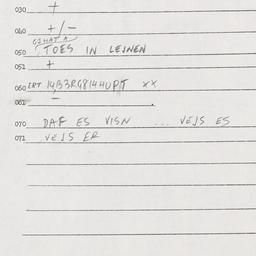 030 +
040 +/-
050 TOES IN LEJNEN
051 +
060 ERT 14B3RG814HUPT XX
061 -
070 DAF ES VISN ... VEJS ES
071 VEJS ER